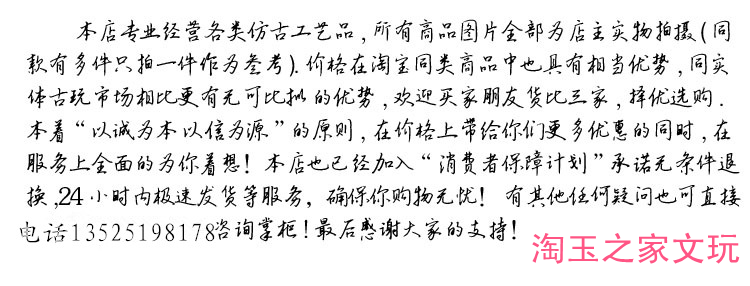 本店专业经营各类仿古工艺品,所有商品图片全部为店主实物拍摄(同
款有多件只拍一件作为参考).价格在淘宝同类商品中也具有相当优势,同实
体古玩市场相比更有无可比拟的优势,欢迎买家朋友货比三家,择优选购.
本着“以诚为本以信为源”的原则,在价格上带给你们更多优惠的同时,在
服务上全面的为你着想!本店也已经加入“消费者保障计划”承诺无条件退
换,24小时内极速发货等服务,确保你购物无忧!有其他任何疑问也可直接
电话13525198178咨询掌柜!最后感谢大家的支持!
淘玉之家文玩